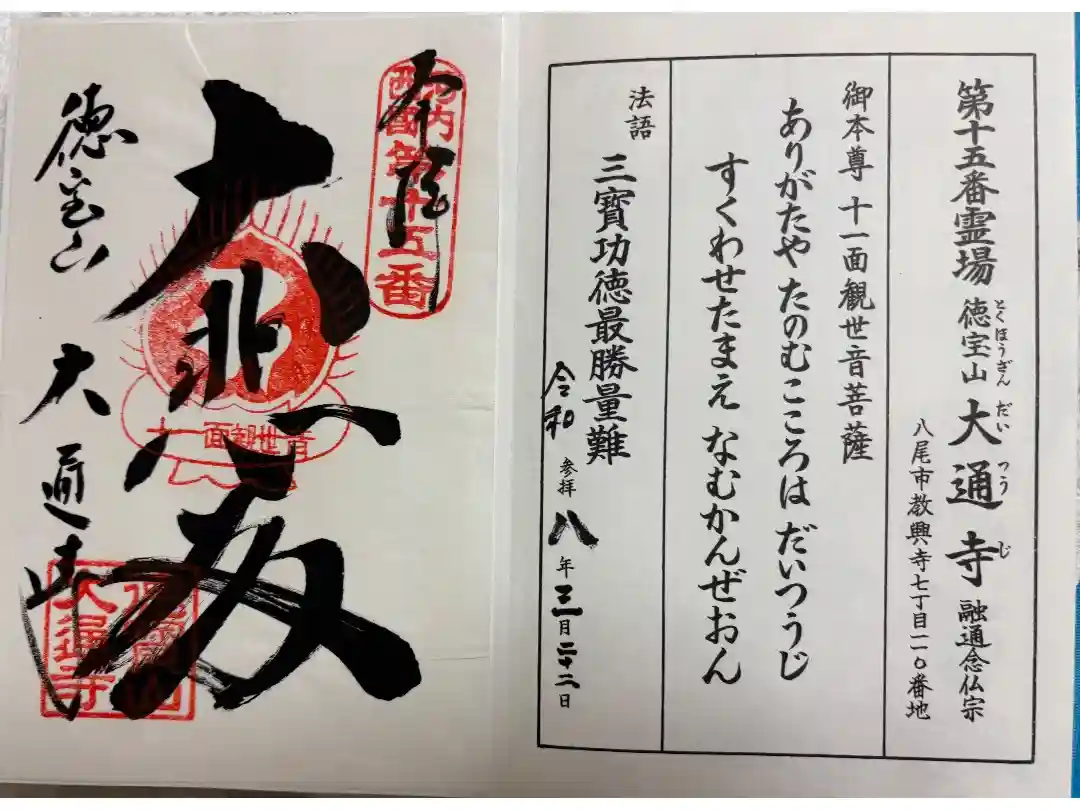 第十五番霊場 徳宝山 大通寺 融通念仏宗
とくほうざん だいつうじ
八尾市教興寺七丁目一一〇番地
御本尊 十一面観世音菩薩
ありがたや たのむこころは だいつうじ
すくわせたまえ なむかんぜおん
法語 三寶功徳最勝量難
令和 参拝 八年三月二十二日
奉拝
河内西國第十五番
大悲殿
十一面観世音
徳宝山 大通寺
徳寳山大通寺